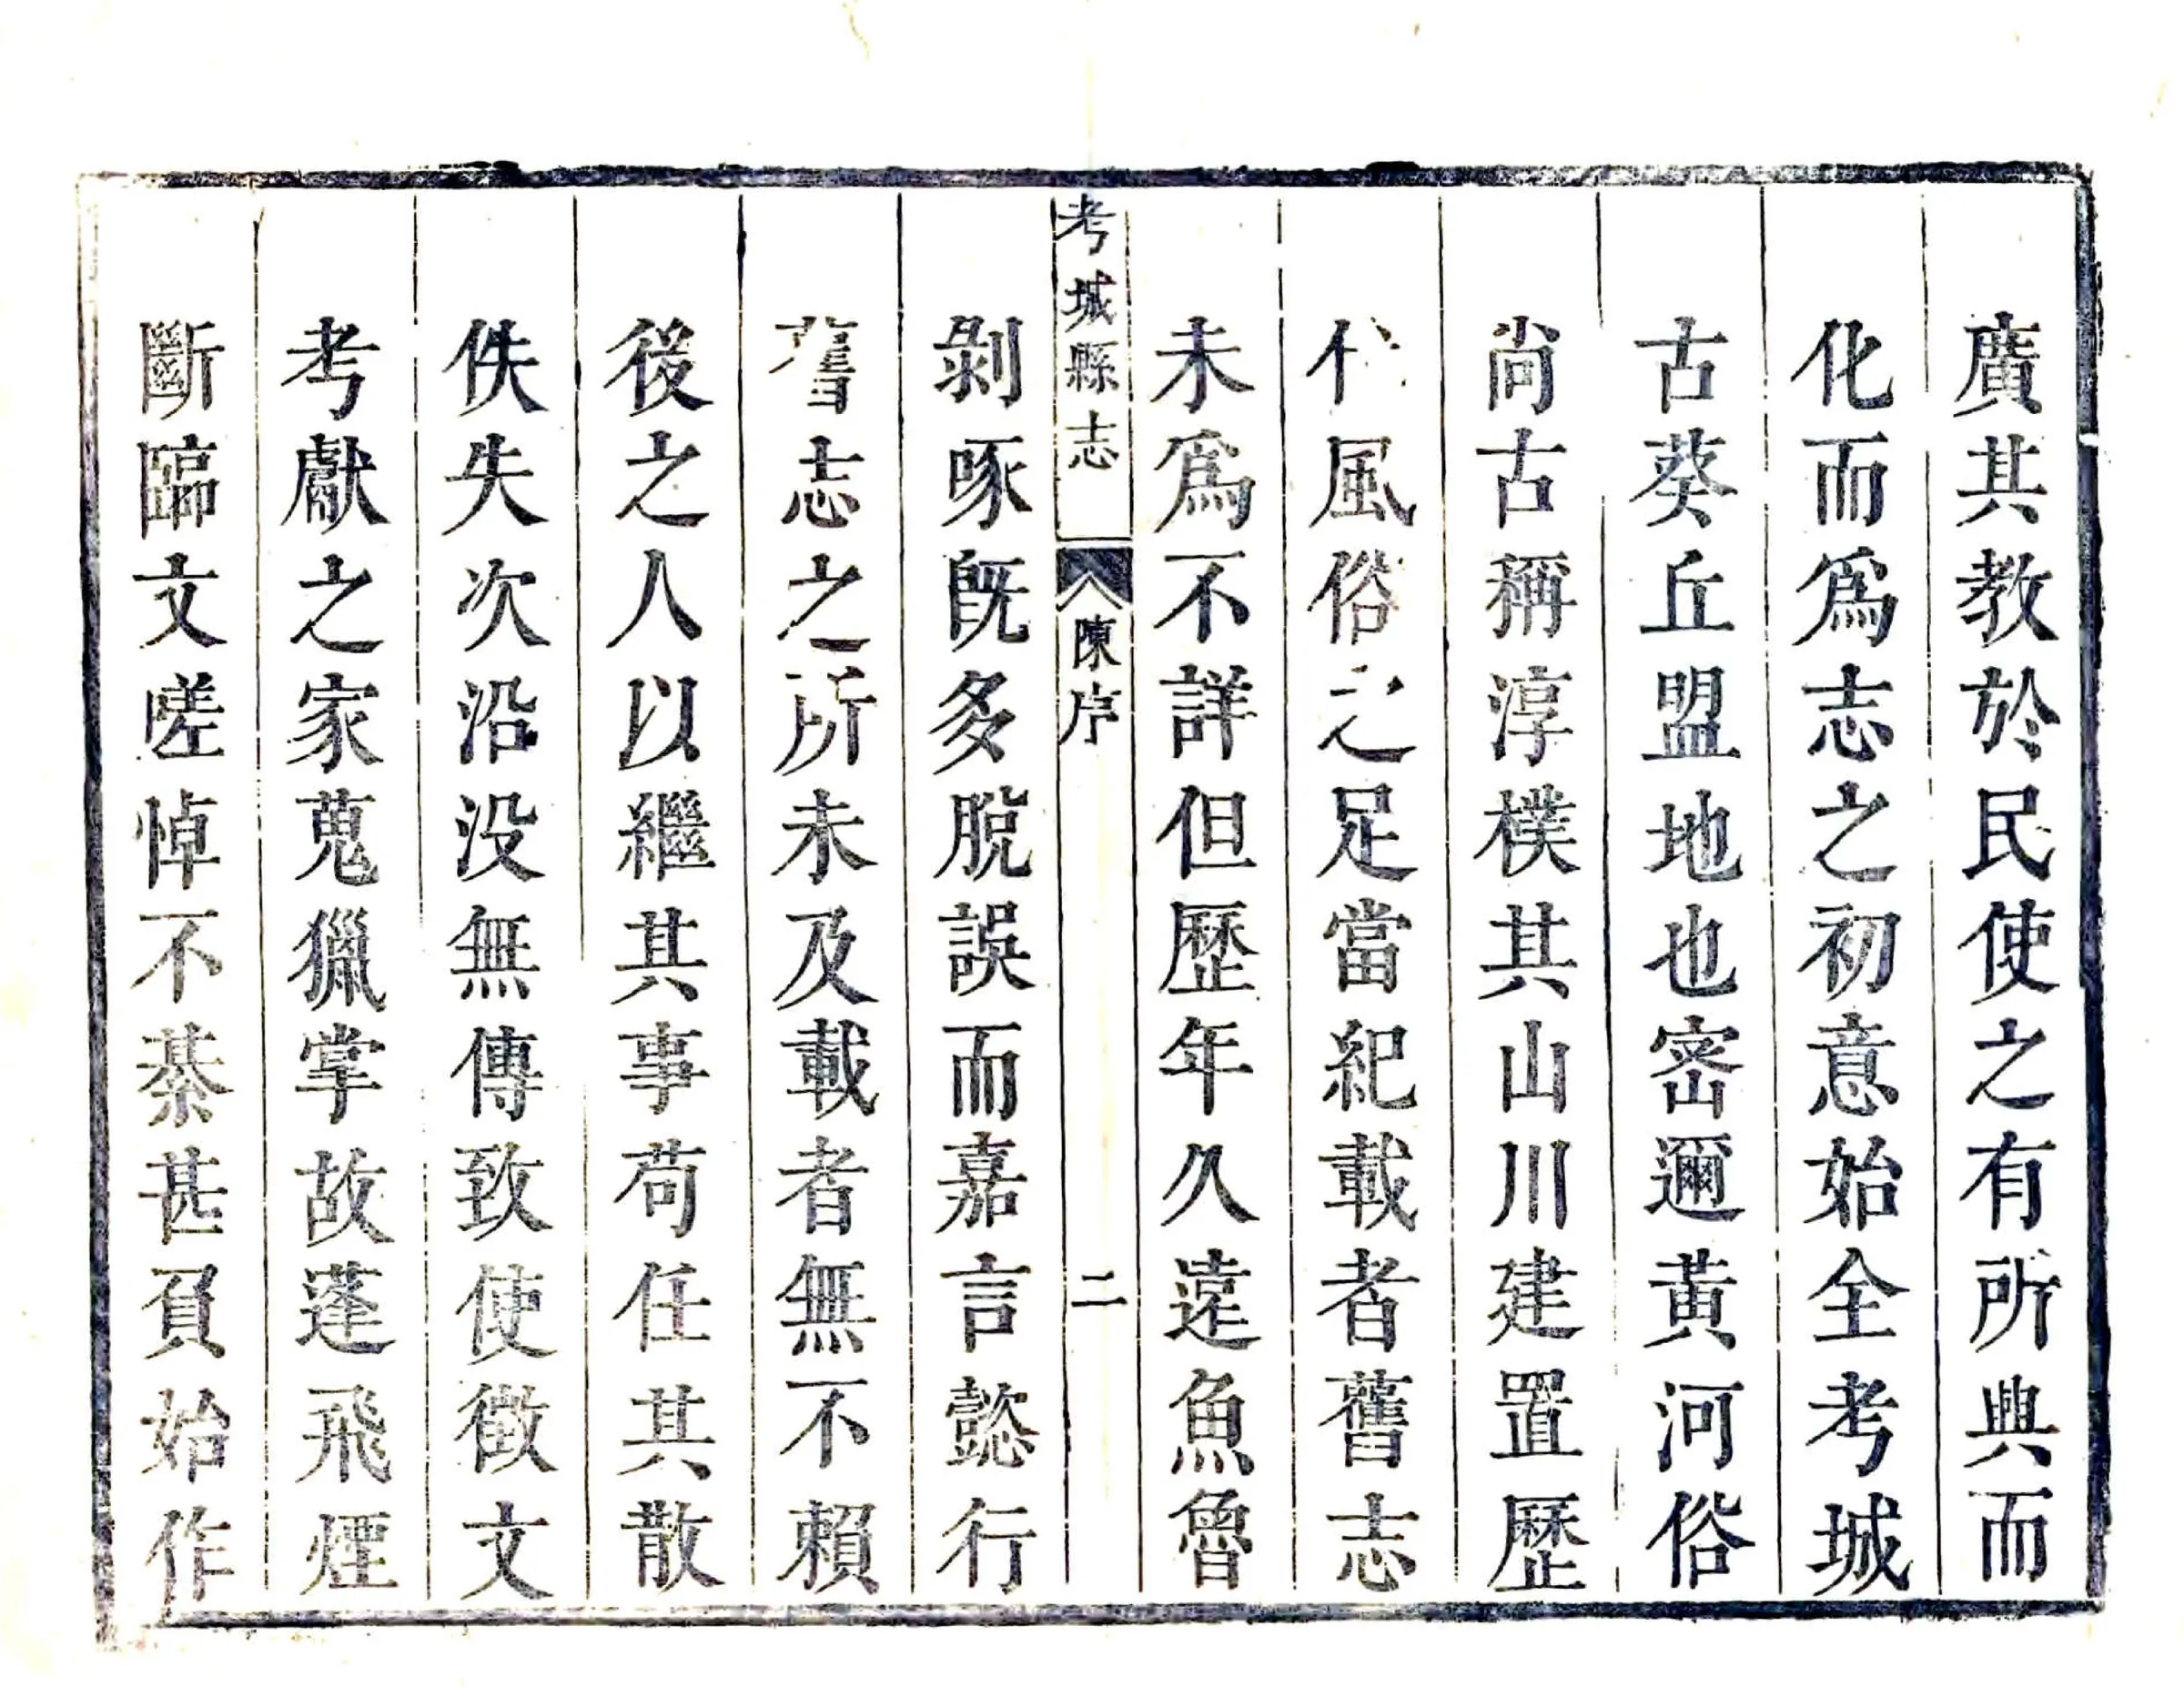 廣其教於民使之有所興而
化而爲志之初意始全考城
古葵丘盟地也密邇黃河俗
尚古稱淳樸其山川建置歷
代風俗之足當紀載者舊志
未爲不詳但歷年久遠魚魯
考城縣志
陳序
二
剝啄旣多脫誤而嘉言懿行
舊志之所未及載者無不賴
後之人以繼其事苟任其散
佚失次沿没無傳致使徵文
考獻之家蒐獵掌故蓬飛煙
斷臨文嗟悼不綦甚負始作